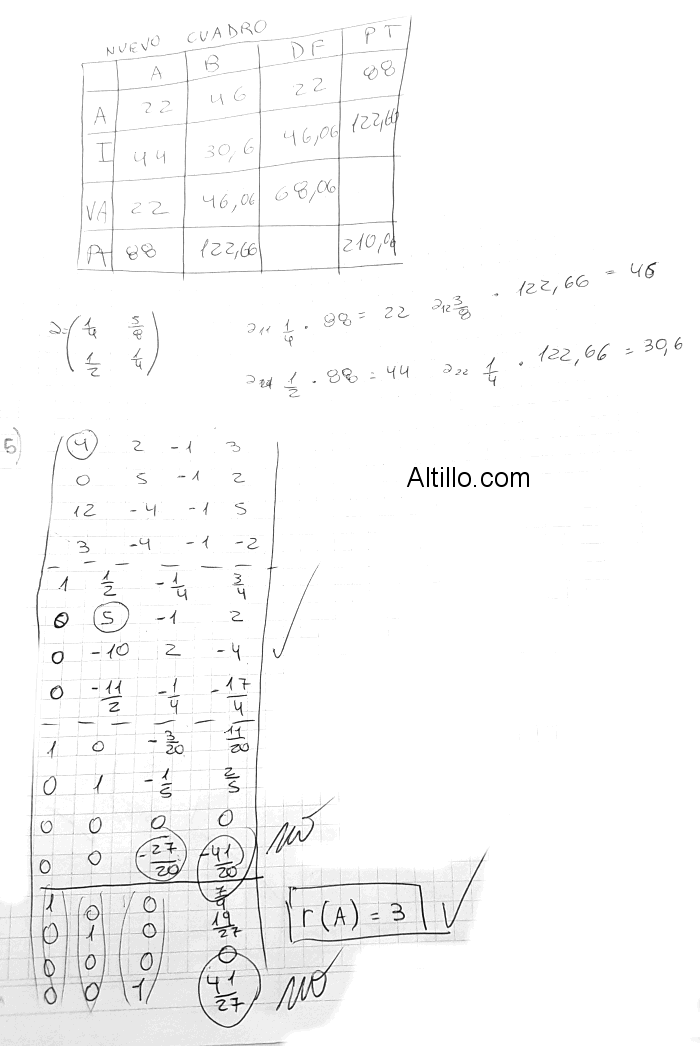 NUEVO CUADRO
A B DF PT
A 22 46 22 88
I 44 30,6 46,06 122,66
VA 22 46,06 68,06
PT 88 122,66 210,06
a=(1/4 5/8
1/2 1/4)
a11 1/4 . 88 = 22 a12 3/8 . 122,66 = 46
a21 1/2 . 88 = 44 a22 1/4 . 122,66 = 30,6
5)
4 2 -1 3
0 5 -1 2
Altillo.com
12 -4 -1 5
3 -4 -1 -2
1 1/2 -1/4 3/4
0 5 -1 2
0 -10 2 -4
0 -11/2 -1/4 -17/4
1 0 -3/20 11/20
0 1 -1/5 2/5
0 0 0 0
0 0 -27/20 -41/20 no
1 0 0 7/9
0 1 0 19/27
r(A) = 3
0 0 0 0
0 0 1 41/27 no